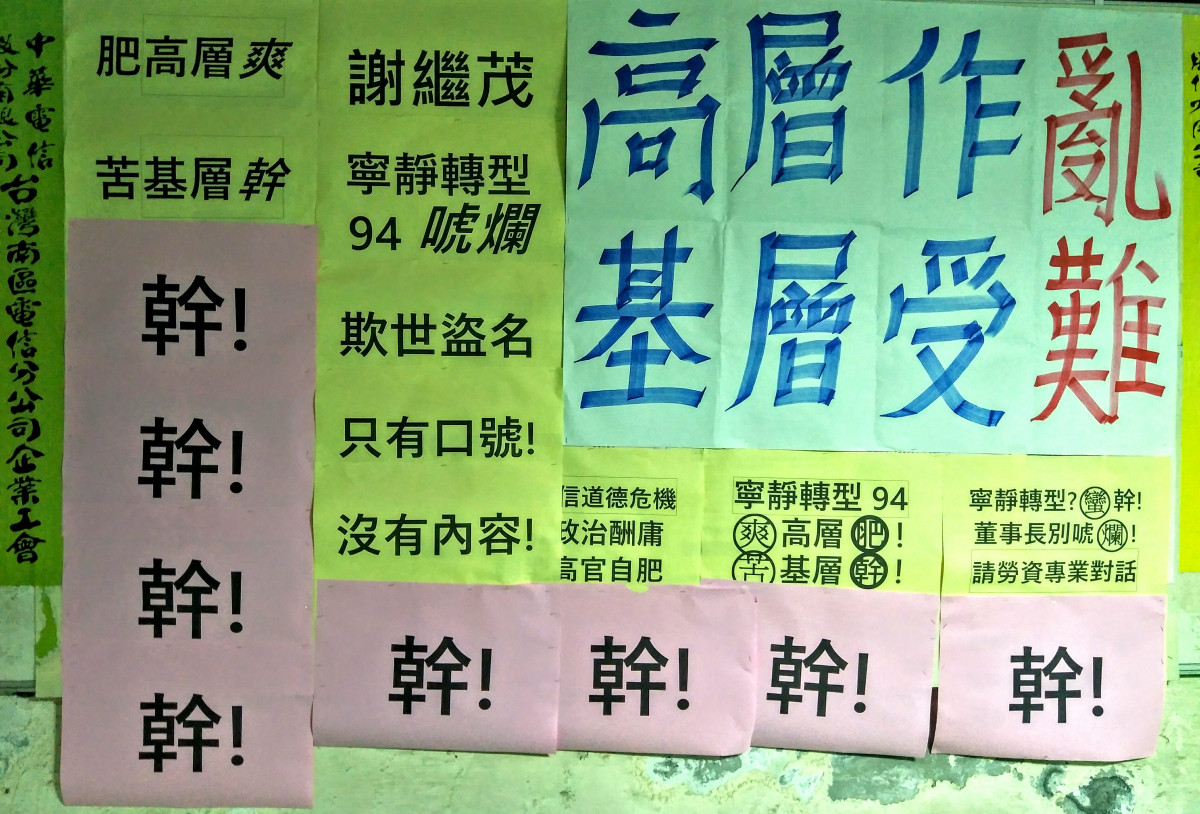 中華電信
股份有限公司台灣南區電信分公司企業工會
肥高層爽
苦基層幹
幹!
幹!
幹!
幹!
謝繼茂
寧靜轉型
94 唬爛
欺世盜名
只有口號!
沒有內容!
幹!
高層作亂
基層受難
信道德危機
政治酬庸
高官自肥
幹!
寧靜轉型 94
爽高層肥!
苦基層幹!
幹!
寧靜轉型?蠻幹!
董事長別唬爛!
請勞資專業對話
幹!